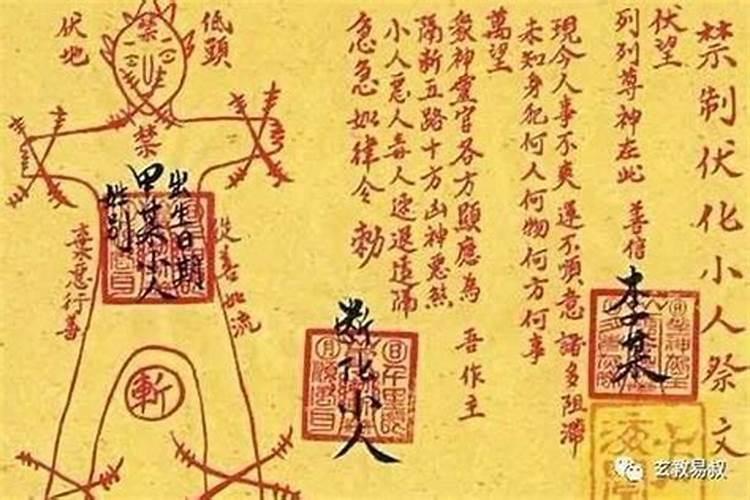 禁制伏化小人祭文
伏望
列列尊神在此 善信 李某
現今人事不爽運不順意諸多阻滯
未知身犯何人何物何方何事
萬望
眾神靈官各方顯應為 吾作主
隔斷五路十方凶神惡煞
小人惡人毒人速退遠隔
急急如律令 勅
斷化小人
低頭
禁
伏地
禁
出生日期
甲某小人
姓别
從善如流
棄惡行善
斬
玄教易叔